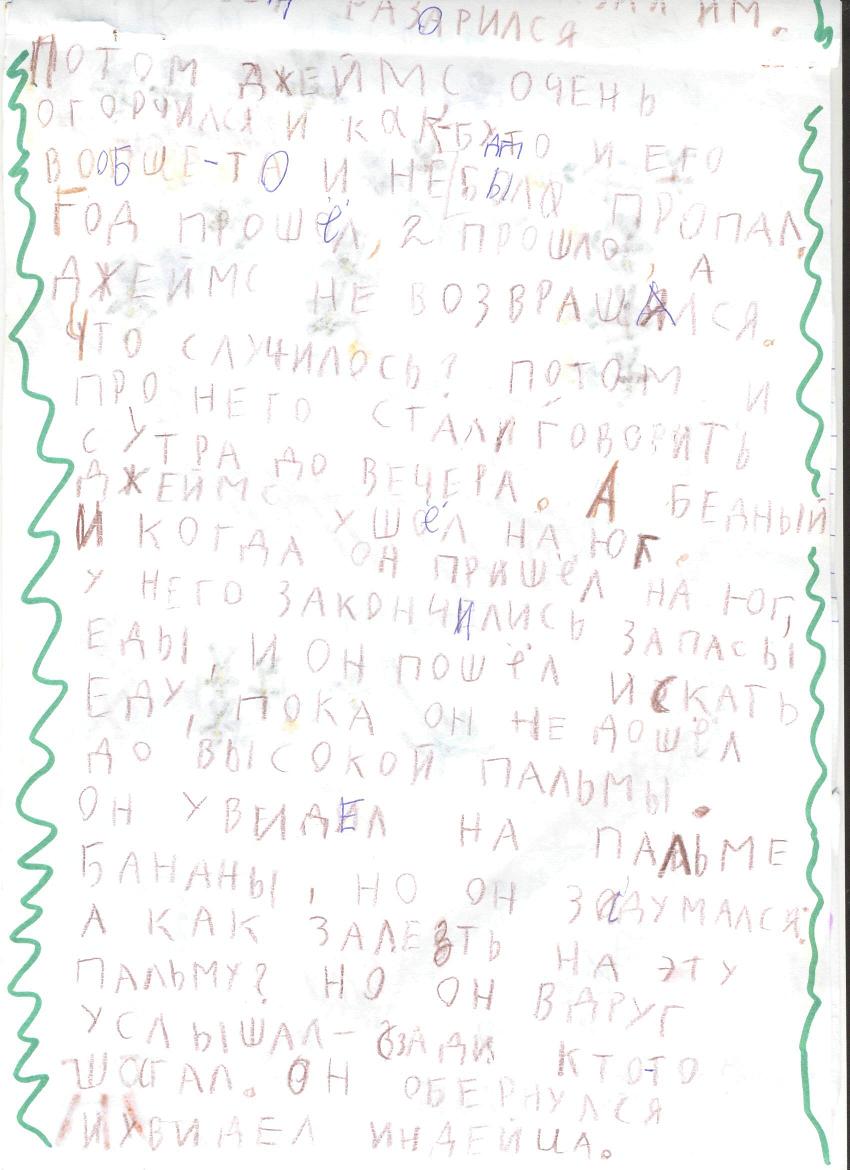 РАЗОРИЛСЯ ИМ.
ПОТОМ ДЖЕЙМС ОЧЕНЬ
ОГОРЧИЛСЯ И КАКБУДТО И ЕГО
ВООБШЕ-ТО И НЕБЫЛО ПРОПАЛ
ГОД ПРОШЁЛ, 2 ПРОШЛО, А
ДЖЕЙМС НЕ ВОЗВРАШАЛСЯ.
ЧТО СЛУЧИЛОСЬ? ПОТОМ И
ПРО НЕГО СТАЛИ ГОВОРИТЬ
С УТРА ДО ВЕЧЕРА. А БЕДНЫЙ
ДЖЕЙМС УШЁЛ НА ЮГ.
И КОГДА ОН ПРИШЁЛ НА ЮГ,
У НЕГО ЗАКОНЧИЛИСЬ ЗАПАСЫ
ЕДЫ, И ОН ПОШЁЛ ИСКАТЬ
ЕДУ, ПОКА ОН НЕ ДОШЁЛ
ДО ВЫСОКОЙ ПАЛЬМЫ.
ОН УВИДЕЛ НА ПАЛЬМЕ
БАНАНЫ, НО ОН ЗАДУМАЛСЯ:
А КАК ЗАЛЕЗТЬ НА ЭТУ
ПАЛЬМУ? НО ОН ВДРУГ
УСЛЫШАЛ- ВЗАДИ КТО-ТО
ШАГАЛ. ОН ОБЕРНУЛСЯ
И УВИДЕЛ ИНДЕЙЦА.